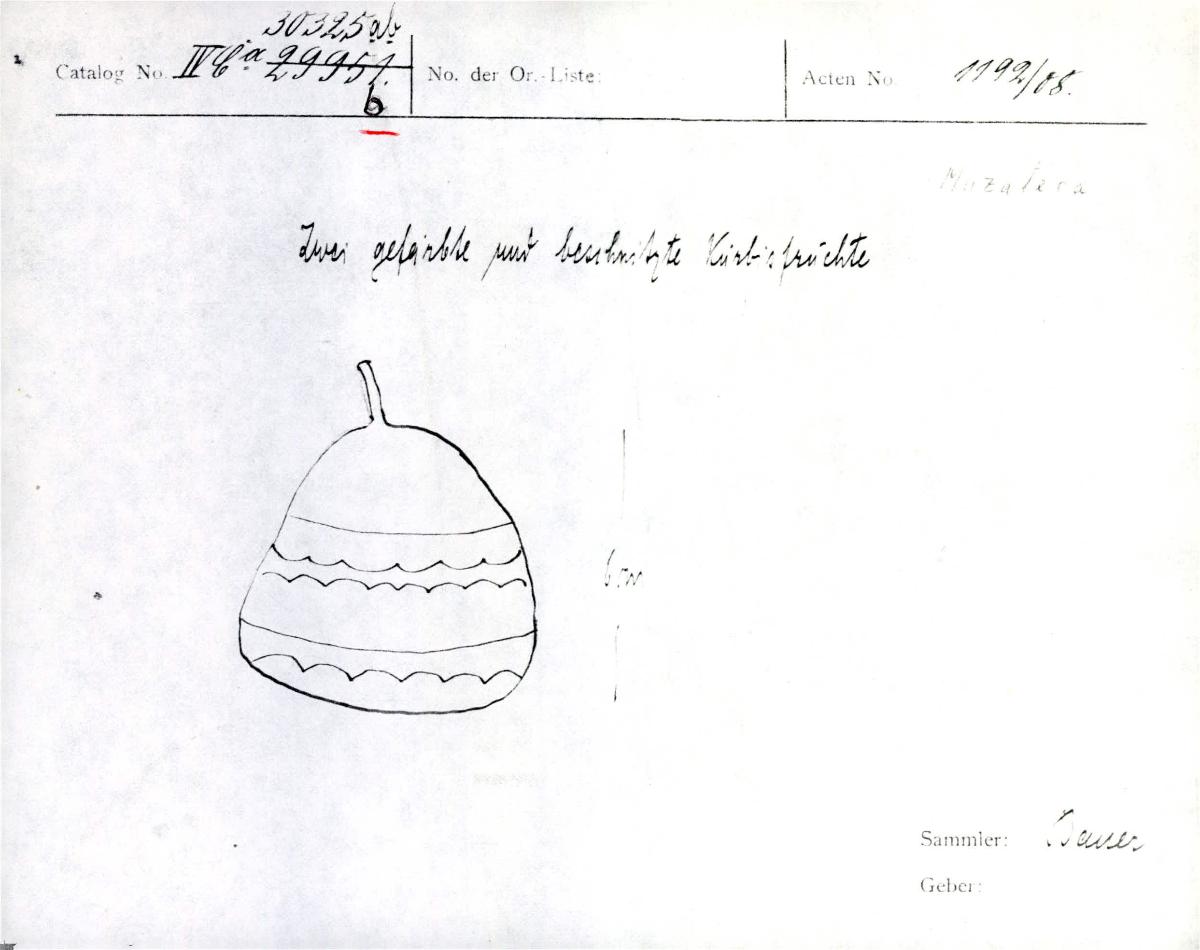 30325 ab
Catalog No. IV Ca 29951. No. der Or.-Liste: Acten No. 1192/08.
b
Mazateca
Zwei gefärbte und beschnitzte Kürbisfrüchte
6 cm
Sammler: Bauer
Geber: